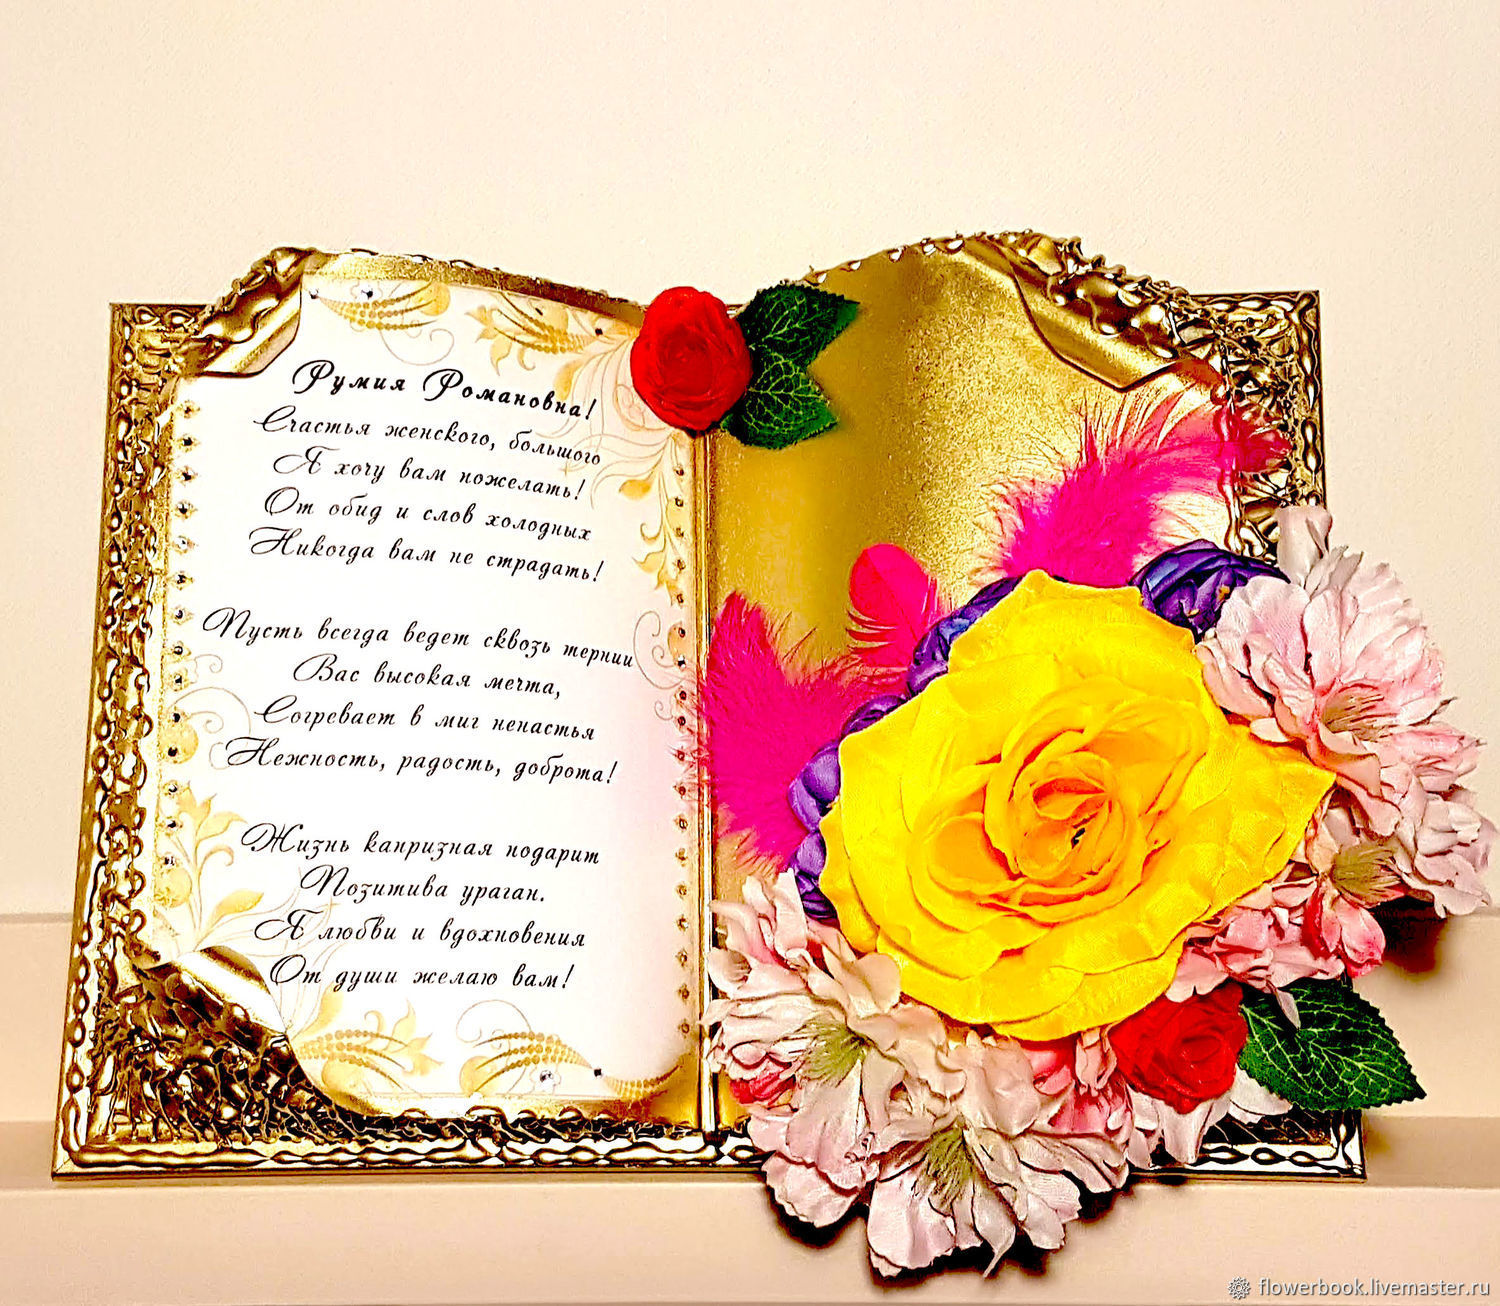 Румия Романовна!
Счастья женского, большого
Я хочу вам пожелать!
От обид и слов холодных
Никогда вам не страдать!
Пусть всегда ведет сквозь тернии
Вас высокая мечта,
Согревает в миг ненастья
Нежность, радость, доброта!
Жизнь капризная подарит
Позитива ураган.
Я любви и вдохновения
От души желаю вам!
flowerbook.livemaster.ru